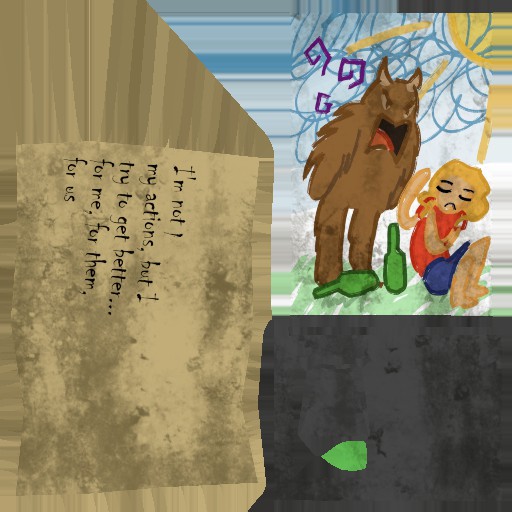 I'm not I
my actions, but I
try to get better...
for me, for them,
for us